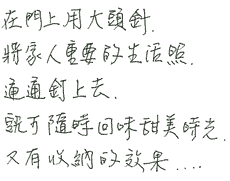 在門上用大頭針.
將家人重要的生活照.
通通釘上去.
就可隨時回味甜美時光.
又有收納的效果....